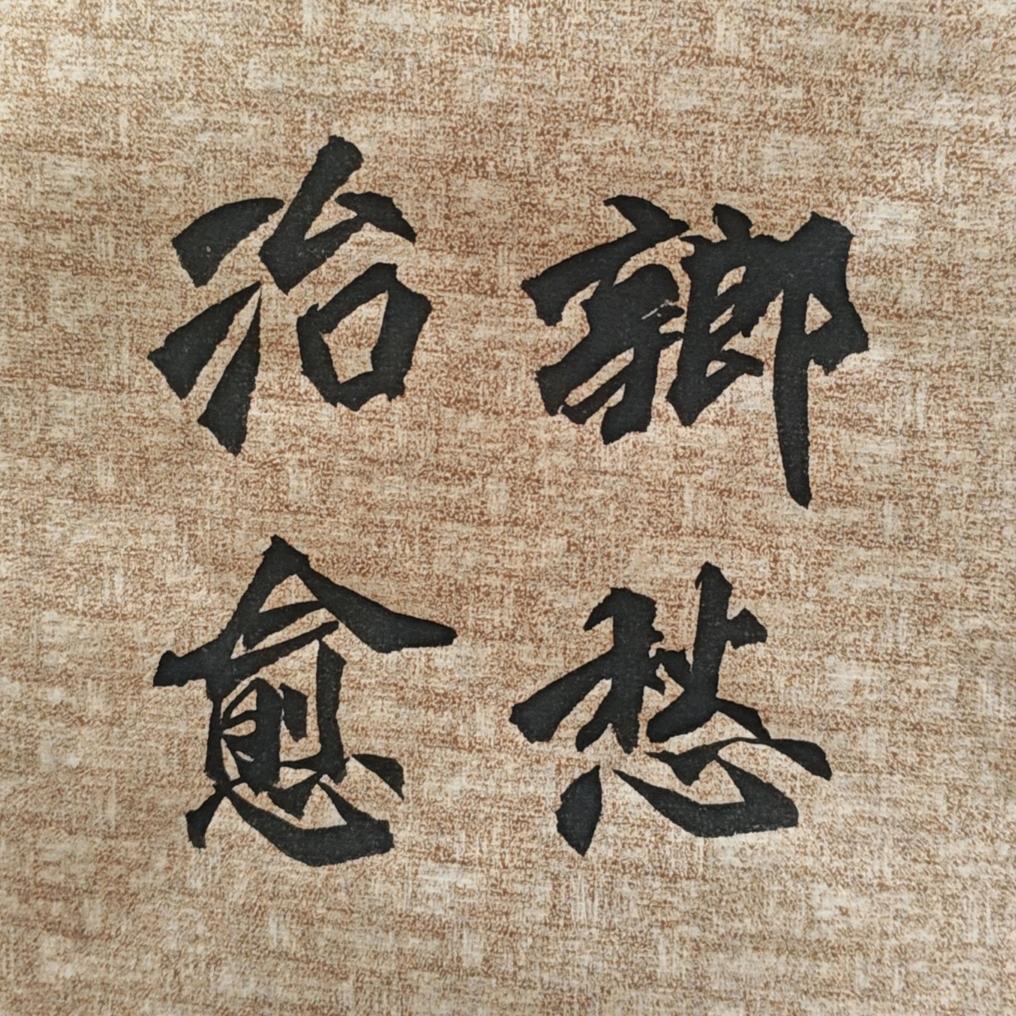 鄉愁
治愈